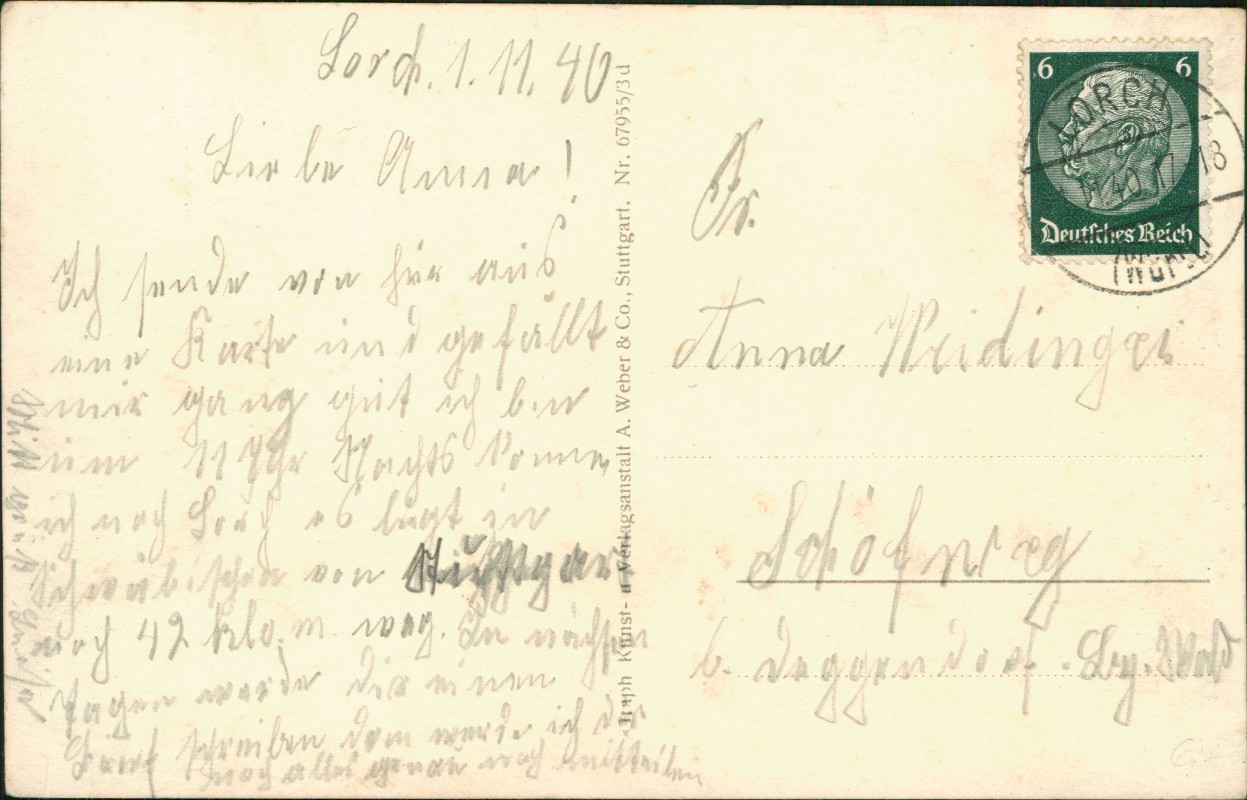 Lorch. 1. 11. 40
Liebe Anna!
Ich sende von hir aus
eine Karte und gefällt
mir ganz gut ich bin
um 11 Uhr Nachts komme
ich nach Lorch es liegt in
Schwäbischen von Stuttgar
noch 42 klo.m. weg. In nächsten
Tagen werde dir einen
Brief schreiben dan werde ich dir
noch alles genau noch mitteilen
Graph Kunst- u Verlagsanstalt A. Weber & Co., Stuttgart. Nr. 67955/3d
6 6
Deutsches Reich
LORCH
11 40 17-18
(WÜRTT)
Fr.
Anna Weidinger
Schöfweg
b. Deggendorf. Bay. Wald